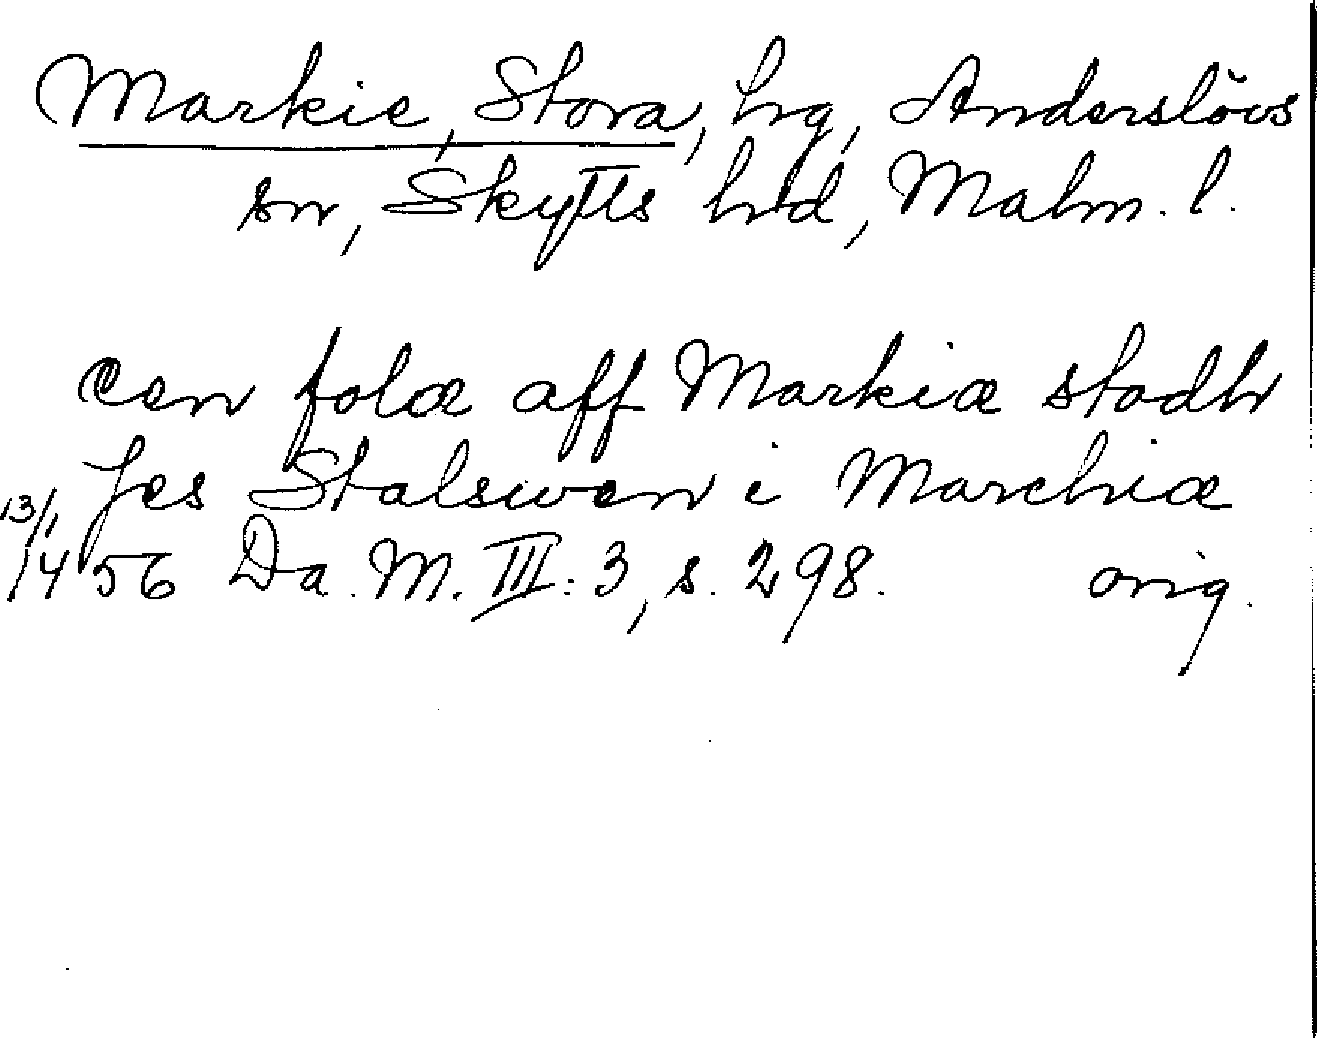 Markie, Stora, hrg, Anderslövs
sn, Skytts hrd, Malm. l.
een folæ aff Markiæ stodh
Jes Stalswen i Marchiæ
13/1 1456 Da. M. III: 3, s. 298. orig.